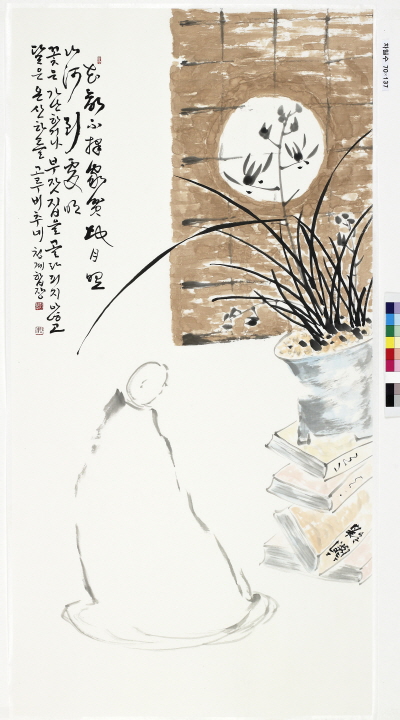 花發不擇家貧地月照
山河到處明
꽃은 가난하거나 부잣집을 골라 피지 않고
달은 온 산하를 고루 비추네 청계합장
70-137